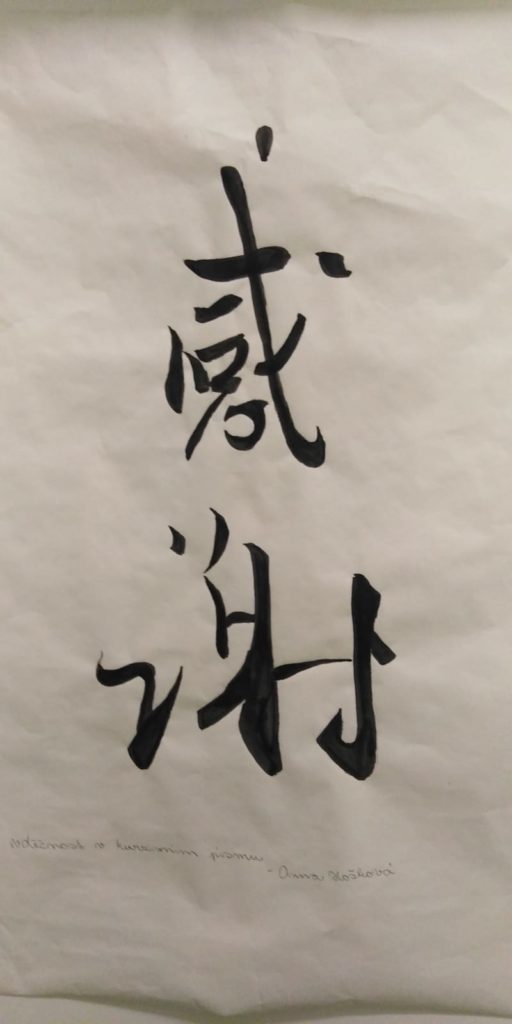 感
谢
vděčnost v kurzivním písmu
- Anna Hošková